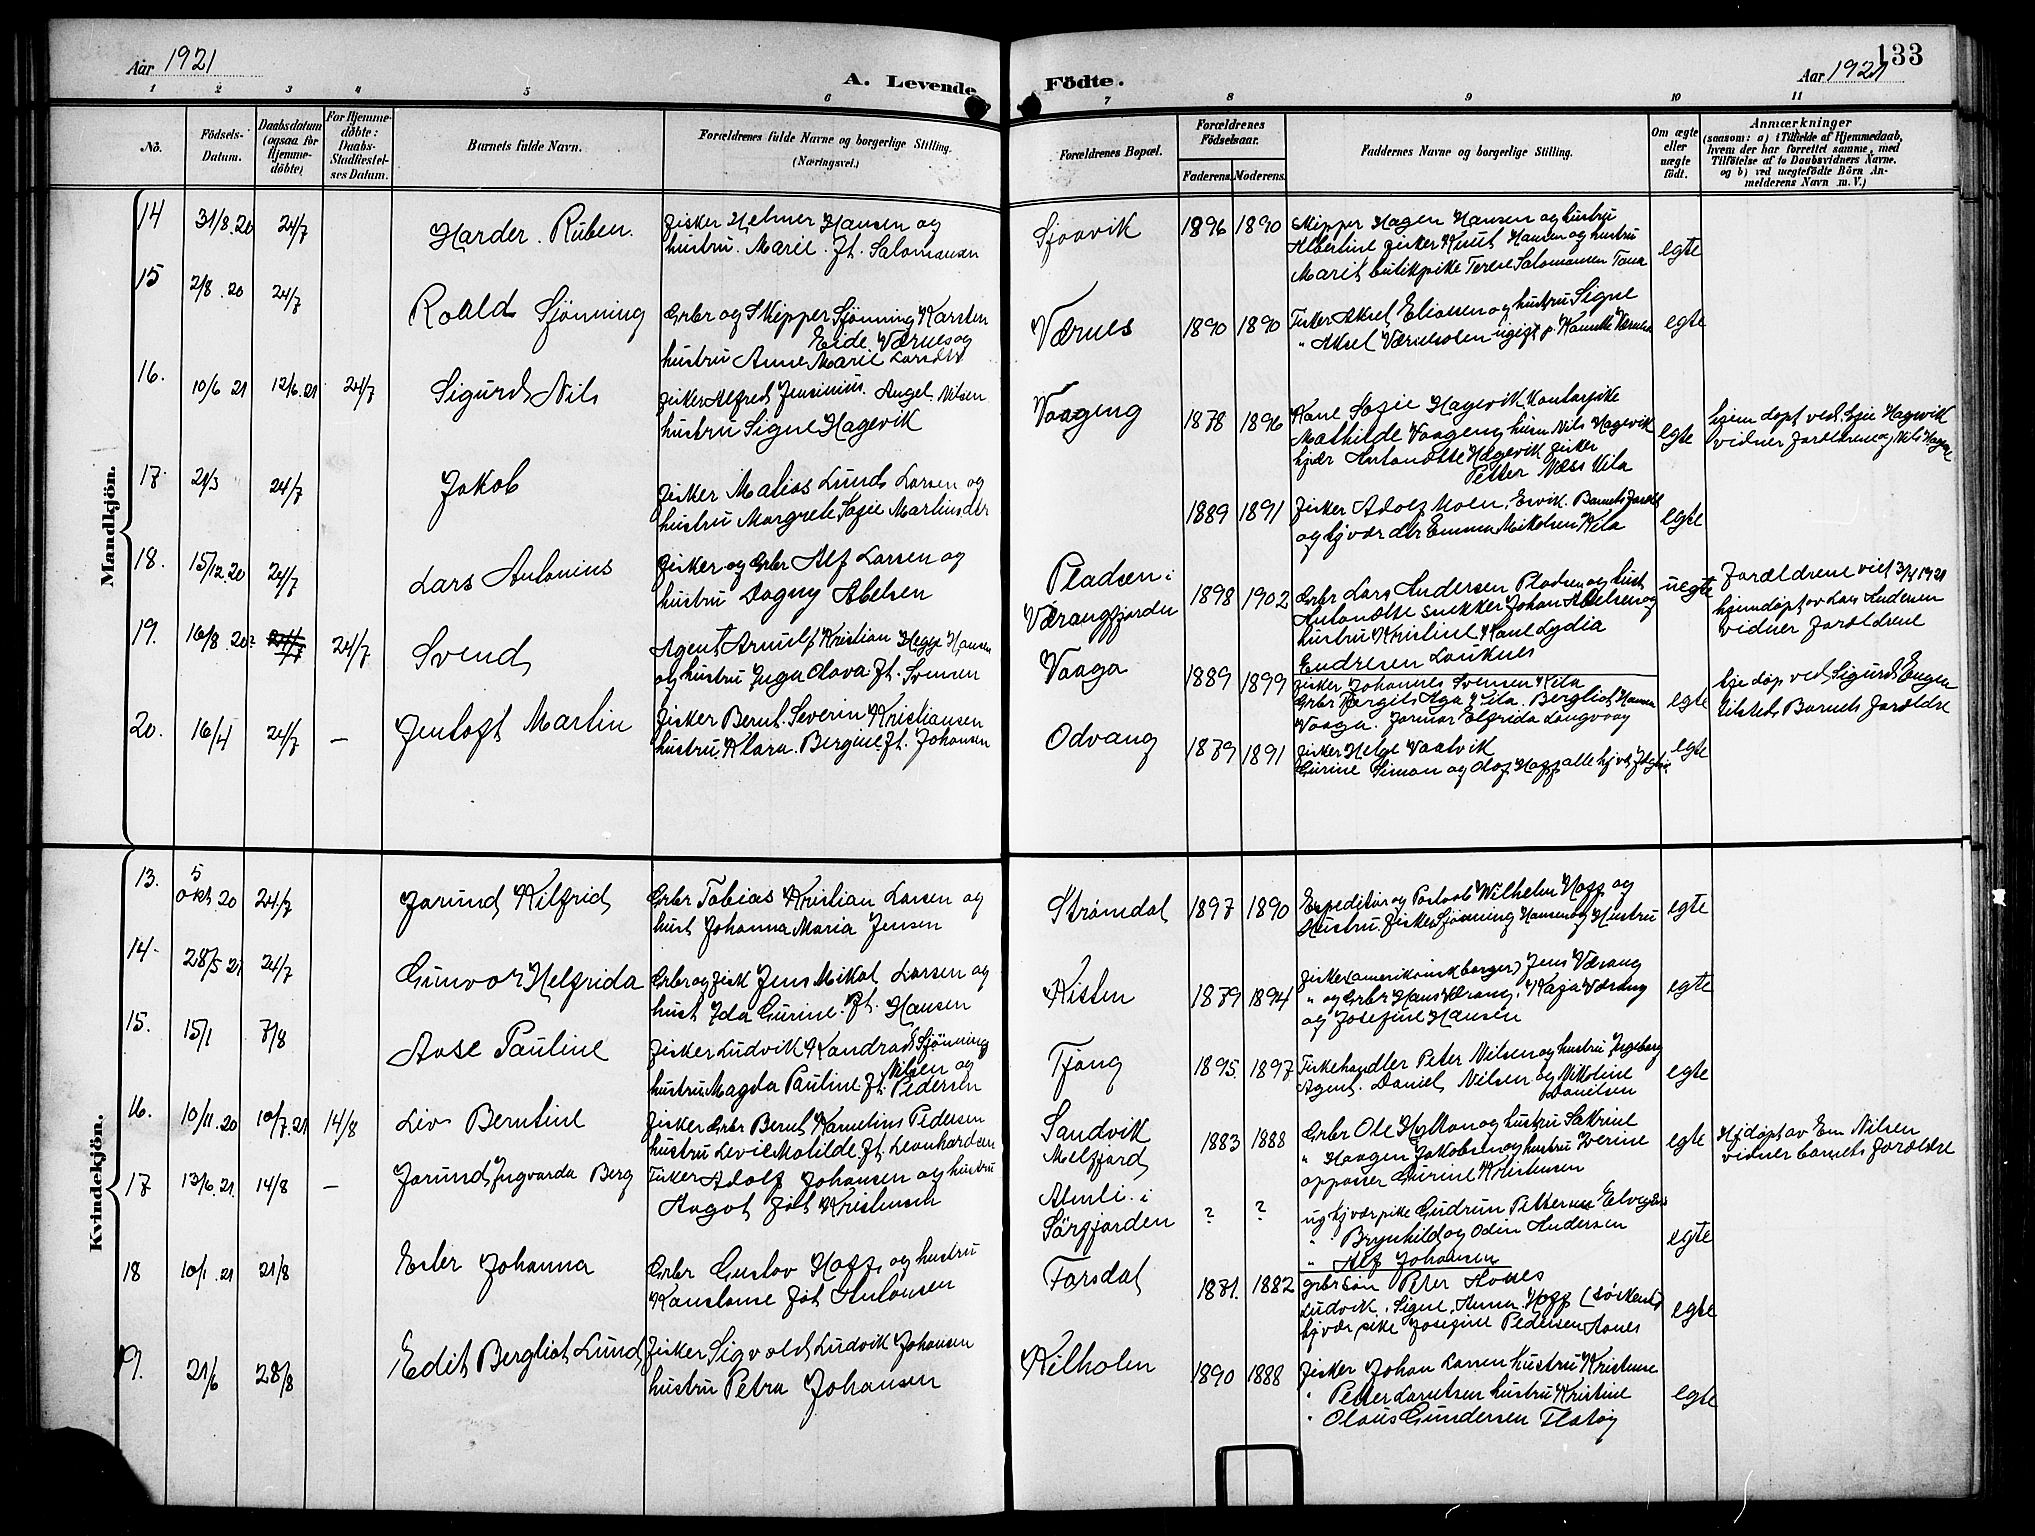 Aar 1921
A. Levende Födte.
133
Aar 1921
1 2 3 4 5 6 7 8 9 10 11
No.
Födsels-Datum.
Daabsdatum (ogsaa for Hjemme-döbte)
For Hjemme-döbte: Daabs-Stadfæstel-ses Datum.
Barnets fulde Navn.
Forældrenes fulde Navne og borgerlige Stilling.
(Næringsvei.)
Forældrenes Bopæl.
Forældrenes Födselsaar.
Faderens. Moderens.
Faddernes Navne og borgerlige Stilling.
Om ægte eller uægte födt.
Anmærkninger
(saasom: a) i Tilfælde af Hjemmedaab,
hvem der har forrettet samme, med
Tilföielse af to Daabsvidners Navne.
og b) ved uægtefödte Börn An-
melderens Navn m. V.)
Mandkjön.
14 31/8.20 24/7 Harder. Ruben. Fisker Helmer Hansen og
hustru. Marie. ft. Salomonsen
Sjoavik 1896 1890 Skipper Hagen Hansen og hustru
Albertine fisker Knut Hansen og hustru
Marit butikpike Terese Salomonsen Tana
egte
15 2/8.20 24/7 Roald Sjönning Grbr og Skipper Sjönning Karsten
Eide Værnes og
hustru Anne Marie Larsdtr
Værnes 1890 1890 Fisker Aksel Eliassen og hustru Signe
" Aksel Værnesolen ugigt p.
egte
16. 10/6 21 12/6.21 24/7 Sigurd Nils fisker Alfred Jensinius. Angel. Nilsen
hustru Signe Hagevik
Vaageng 1878 1896 Kone Sofie Hagevik Kontorpike
Mathilde Vaageng hism Nils Hagevik
hjvdr Antonette Hagevik fisker
Petter Næss Kila
egte
hjem døpt ved Sofie Hagevik
vidner forældrene og Nils Hagevik
17. 21/3 24/7 Jakob fisker Matias Lund Larsen og
hustru Margrete Sofie Martinsdtr
1889 1891 fisker Adolf Moen, Esvik. Barnets forældr
og hjvær dtr Emma Mikelsen Kila
egte
18. 15/12.20 24/7 Lars Antonius fisker og Grbr Alf Larsen og
hustru Dagny Abelsen
Pladsen i
Værangfjorden
1898 1902 Grbr Lars Andersen Pladsen og hust
Antonette snekker Johan Abelsen og
hustru Kristine Kone Lydia
Endresen Louknes
uegte
Forældrene viet 3/4 1921
hjemdøpt av Lars Andersen
vidner forældrene
19. 16/8.20 24/7 24/7 Svend Agent Arnulf Kristian Hegge Hansen
og hustru Inga Olava. ft. Svensen
Vaaga 1889 1899 fisker Johannes Svensen Kila
Grbr Torgils Aga Kila. Bergliot Hansen
Vaaga. Jomar Elfrida Langvaag
egte
hje døp ved Sigurd Engen
tilsted Barnets forældre
20. 16/4 24/7 — Jentoft Martin fisker Bernt. Severin Kristiansen
hustru Klara. Bergine. ft. Johansen
Odvang 1879 1891 fisker Helge Vaatvik
Gurine Simon og Olaf Hoff alle hjvd
egte
Kvindekjön.
13. 5 okt.20 24/7 Jorund Kilfrid Grbr Tobias Kristian Larsen og
hust Johanna Maria Jensen
Strömdal 1897 1890 Expeditör og Postaab Wilhelm Hoff og
Hustru. fisker Sjönning Hansen og Hustru
egte
14. 28/5 21 24/7 Gunvor Helfrida Grbr og fisk Jens Mikal Larsen og
hust Ida Gurine. ft. Hansen
Kisten 1879 1894 fisker (amerikansk borger) Jens Værang
" og Grbr Hans Værang. Kaja Værang
og Josefine Hansen
egte
15. 15/1 7/8 Aase Pauline fisker Ludvik Kondrad Sjönning
Nilsen og
hustru Magda Pauline ft. Pedersen
Tjong 1895 1897 Fiskehandler Peter Nilsen og hustru Ingeborg
Agent. Daniel Nilsen og Nikoline
Danilsen
egte
16. 10/11.20 10/7.21 14/8 Liv Berntine fisker Grbr Bernt Kornelius Pedersen
hustru Levie Matilde. ft. Leonhardsen
Sandvik
Melfjord
1883 1888 Grbr Ole Hylkan og hustru Sakrine
" Haagen Jakobsen og hustru Iverine
oppasser Gurine Kristensen
egte
Hjdøpt av Em Nilsen
vidner barnets forældre
17 13/6.21. 14/8 — Jorund Ingvarda Berg Fisker Adolf Johansen og hustru
Aagot föt Kristensen
Almli. i
Sörfjorden
? ? ug hjvær pike Gudrun Pettersen
" Brynhild og Odin Andersen
" Alf Johansen
egte
18 10/1.21 21/8 Ester Johanna Grbr Gustav Hoff og hustru
Konstanse föt Antonsen
Farsdal 1871. 1882 grbr sön Peter Aanes
Ludvik, Signe, Anna. Hoff (söskend)
hjvær pike Josefine Pedersen Aanes
egte
19. 21/6 28/8 Edit Bergliot Lund fisker Sigvald Ludvik Johansen
hustru Petra Johansen
Kilholm 1890 1888 fisker Johan Larsen hustru Kristense
" Petter Larntsen hustru Kristine
" Olaus Gundersen Flatöy
egte